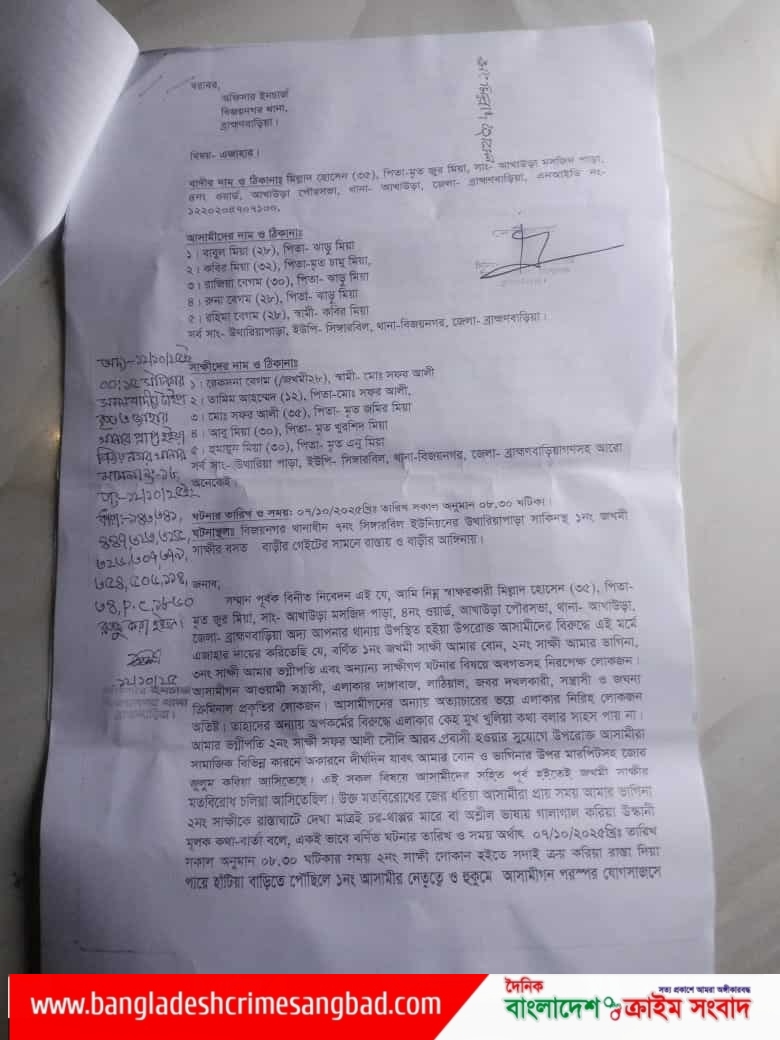 বরাবর,
অফিসার ইনচার্জ
বিজয়নগর থানা,
ব্রাহ্মণবাড়িয়া।
বিষয়- এজাহার।
বাদীর নাম ও ঠিকানাঃ মিল্লাদ হোসেন (৩৫), পিতা-মৃত জুর মিয়া, সাং- আখাউড়া মসজিদ পাড়া,
৪নং ওয়ার্ড, আখাউড়া পৌরসভা, থানা- আখাউড়া, জেলা- ব্রাহ্মণবাড়িয়া, এনআইডি নং-
আসামীদের নাম ও ঠিকানাঃ
১। বাবুল মিয়া (২৮), পিতা- ঝাড়ু মিয়া
২। কবির মিয়া (৩২), পিতা-মৃত চামু মিয়া,
৩। রাজিয়া বেগম (৩০), পিতা- ঝাড়ু মিয়া
৪। রুনা বেগম (২৮), পিতা- ঝাড়ু মিয়া
৫। রহিমা বেগম (২৮), স্বামী- কবির মিয়া
সর্ব সাং- উথারিয়াপাড়া, ইউপি- সিঙ্গারবিল, থানা-বিজয়নগর, জেলা- ব্রাহ্মণবাড়িয়া।
সাক্ষীদের নাম ও ঠিকানাঃ
১। রেকসনা বেগম (/জখমী২৮), স্বামী- মোঃ সফর আলী
২। তামিম আহম্মেদ (১২), পিতা-মোঃ সফর আলী,
৩। মোঃ সফর আলী (৩৫), পিতা- মৃত জমির মিয়া
৪। আবু মিয়া (৩০), পিতা- মৃত খুরশিদ মিয়া
৫। হুমায়ুন মিয়া (৩০), পিতা- মৃত এনু মিয়া
সর্ব সাং- উথারিয়া পাড়া, ইউপি- সিঙ্গারবিল, থানা-বিজয়নগর, জেলা- ব্রাহ্মণবাড়িয়াগণসহ আরো
অনেকেই।
ঘটনার তারিখ ও সময়ঃ ০৭/১০/২০২৫খ্রিঃ তারিখ সকাল অনুমান ০৮.৩০ ঘটিকা।
ঘটনাস্থলঃ বিজয়নগর থানাধীন ৭নং সিঙ্গারবিল ইউনিয়নের উথারিয়াপাড়া সাকিনস্থ ১নং জখমী
সাক্ষীর বসত বাড়ীর গেইটের সামনে রাস্তায় ও বাড়ীর আঙ্গিনায়।
জনাব,
সম্মান পূর্বক বিনীত নিবেদন এই যে, আমি নিম্ন স্বাক্ষরকারী মিল্লাদ হোসেন (৩৫), পিতা-
মৃত জুর মিয়া, সাং- আখাউড়া মসজিদ পাড়া, ৪নং ওয়ার্ড, আখাউড়া পৌরসভা, থানা- আখাউড়া,
জেলা- ব্রাহ্মণবাড়িয়া অদ্য আপনার থানায় উপস্থিত হইয়া উপরোক্ত আসামীদের বিরুদ্ধে এই মর্মে
এজাহার দায়ের করিতেছি যে, বর্ণিত ১নং জখমী সাক্ষী আমার বোন, ২নং সাক্ষী আমার ভাগিনা,
৩নং সাক্ষী আমার ভগ্নীপতি এবং অন্যান্য সাক্ষীগণ ঘটনার বিষয়ে অবগতসহ নিরপেক্ষ লোকজন।
আসামীগন আওয়ামী সন্ত্রাসী, এলাকার দাঙ্গাবাজ, লাঠিয়াল, জবর দখলকারী, সন্ত্রাসী ও জঘন্য
ক্রিমিনাল প্রকৃতির লোকজন। আসামীগনদের অন্যায় অত্যাচারের ভয়ে এলাকার নিরিহ লোকজন
অতিষ্ট। তাহাদের অন্যায় অপকর্মের বিরুদ্ধে এলাকার কেহ মুখ খুলিয়া কথা বলার সাহস পায় না।
আমার ভগ্নীপতি ২নং সাক্ষী সফর আলী সৌদি আরব প্রবাসী হওয়ার সুযোগে উপরোক্ত আসামীরা
সামাজিক বিভিন্ন কারনে অকারনে দীর্ঘদিন যাবৎ আমার বোন ও ভাগিনার উপর মারপিটসহ জোর
জুলুম করিয়া আসিতেছে। এই সকল বিষয়ে আসামীদের সহিত পূর্ব হইতেই জখমী সাক্ষীর
মতবিরোধ চলিয়া আসিতেছিল। উক্ত মতবিরোধের জের ধরিয়া আসামীরা প্রায় সময় আমার ভাগিনা
২নং সাক্ষীকে রাস্তাঘাটে দেখা মাত্রই চর-থাপ্পর মারে বা অশ্লীল ভাষায় গালাগাল করিয়া উস্কানী
মূলক কথা-বার্তা বলে, একই ভাবে বর্ণিত ঘটনার তারিখ ও সময় অর্থাৎ ০৭/১০/২০২৫খ্রিঃ তারিখ
সকাল অনুমান ০৮.৩০ ঘটিকার সময় ২নং সাক্ষী দোকান হইতে সদাই ক্রয় করিয়া রাস্তা দিয়া
পায়ে হাঁটিয়া বাড়িতে পৌঁছিলে ১নং আসামীর নেতৃত্বে ও হুকুমে আসামীগন পরস্পর যোগসাজসে
www.bangladeshcrimesangbad.com
দৈনিক
সত্য প্রকাশে আমরা অঙ্গীকারবদ্ধ
বাংলাদেশ ক্রাইম সংবাদ